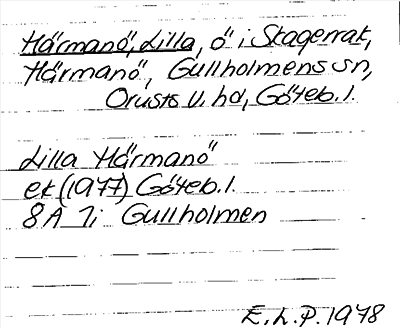 Härmanö, Lilla, ö i Skagerrak,
Härmanö, Gullholmens sn,
Orusts V. hd, Göteb. l.
Lilla Härmanö
ek (1977) Göteb. l.
8A 7i Gullholmen
E. L. P. 1978